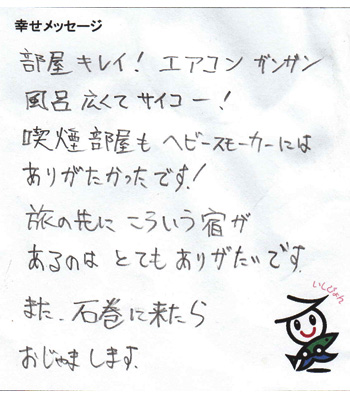 幸せメッセージ
部屋 キレイ! エアコン ガンガン
風呂 広くて サイコー!
喫煙部屋も ヘビースモーカーには
ありがたかったです!
旅の先に こういう宿が
あるのは とても ありがたいです
また、石巻に来たら
おじゃまします。
いしぴょん